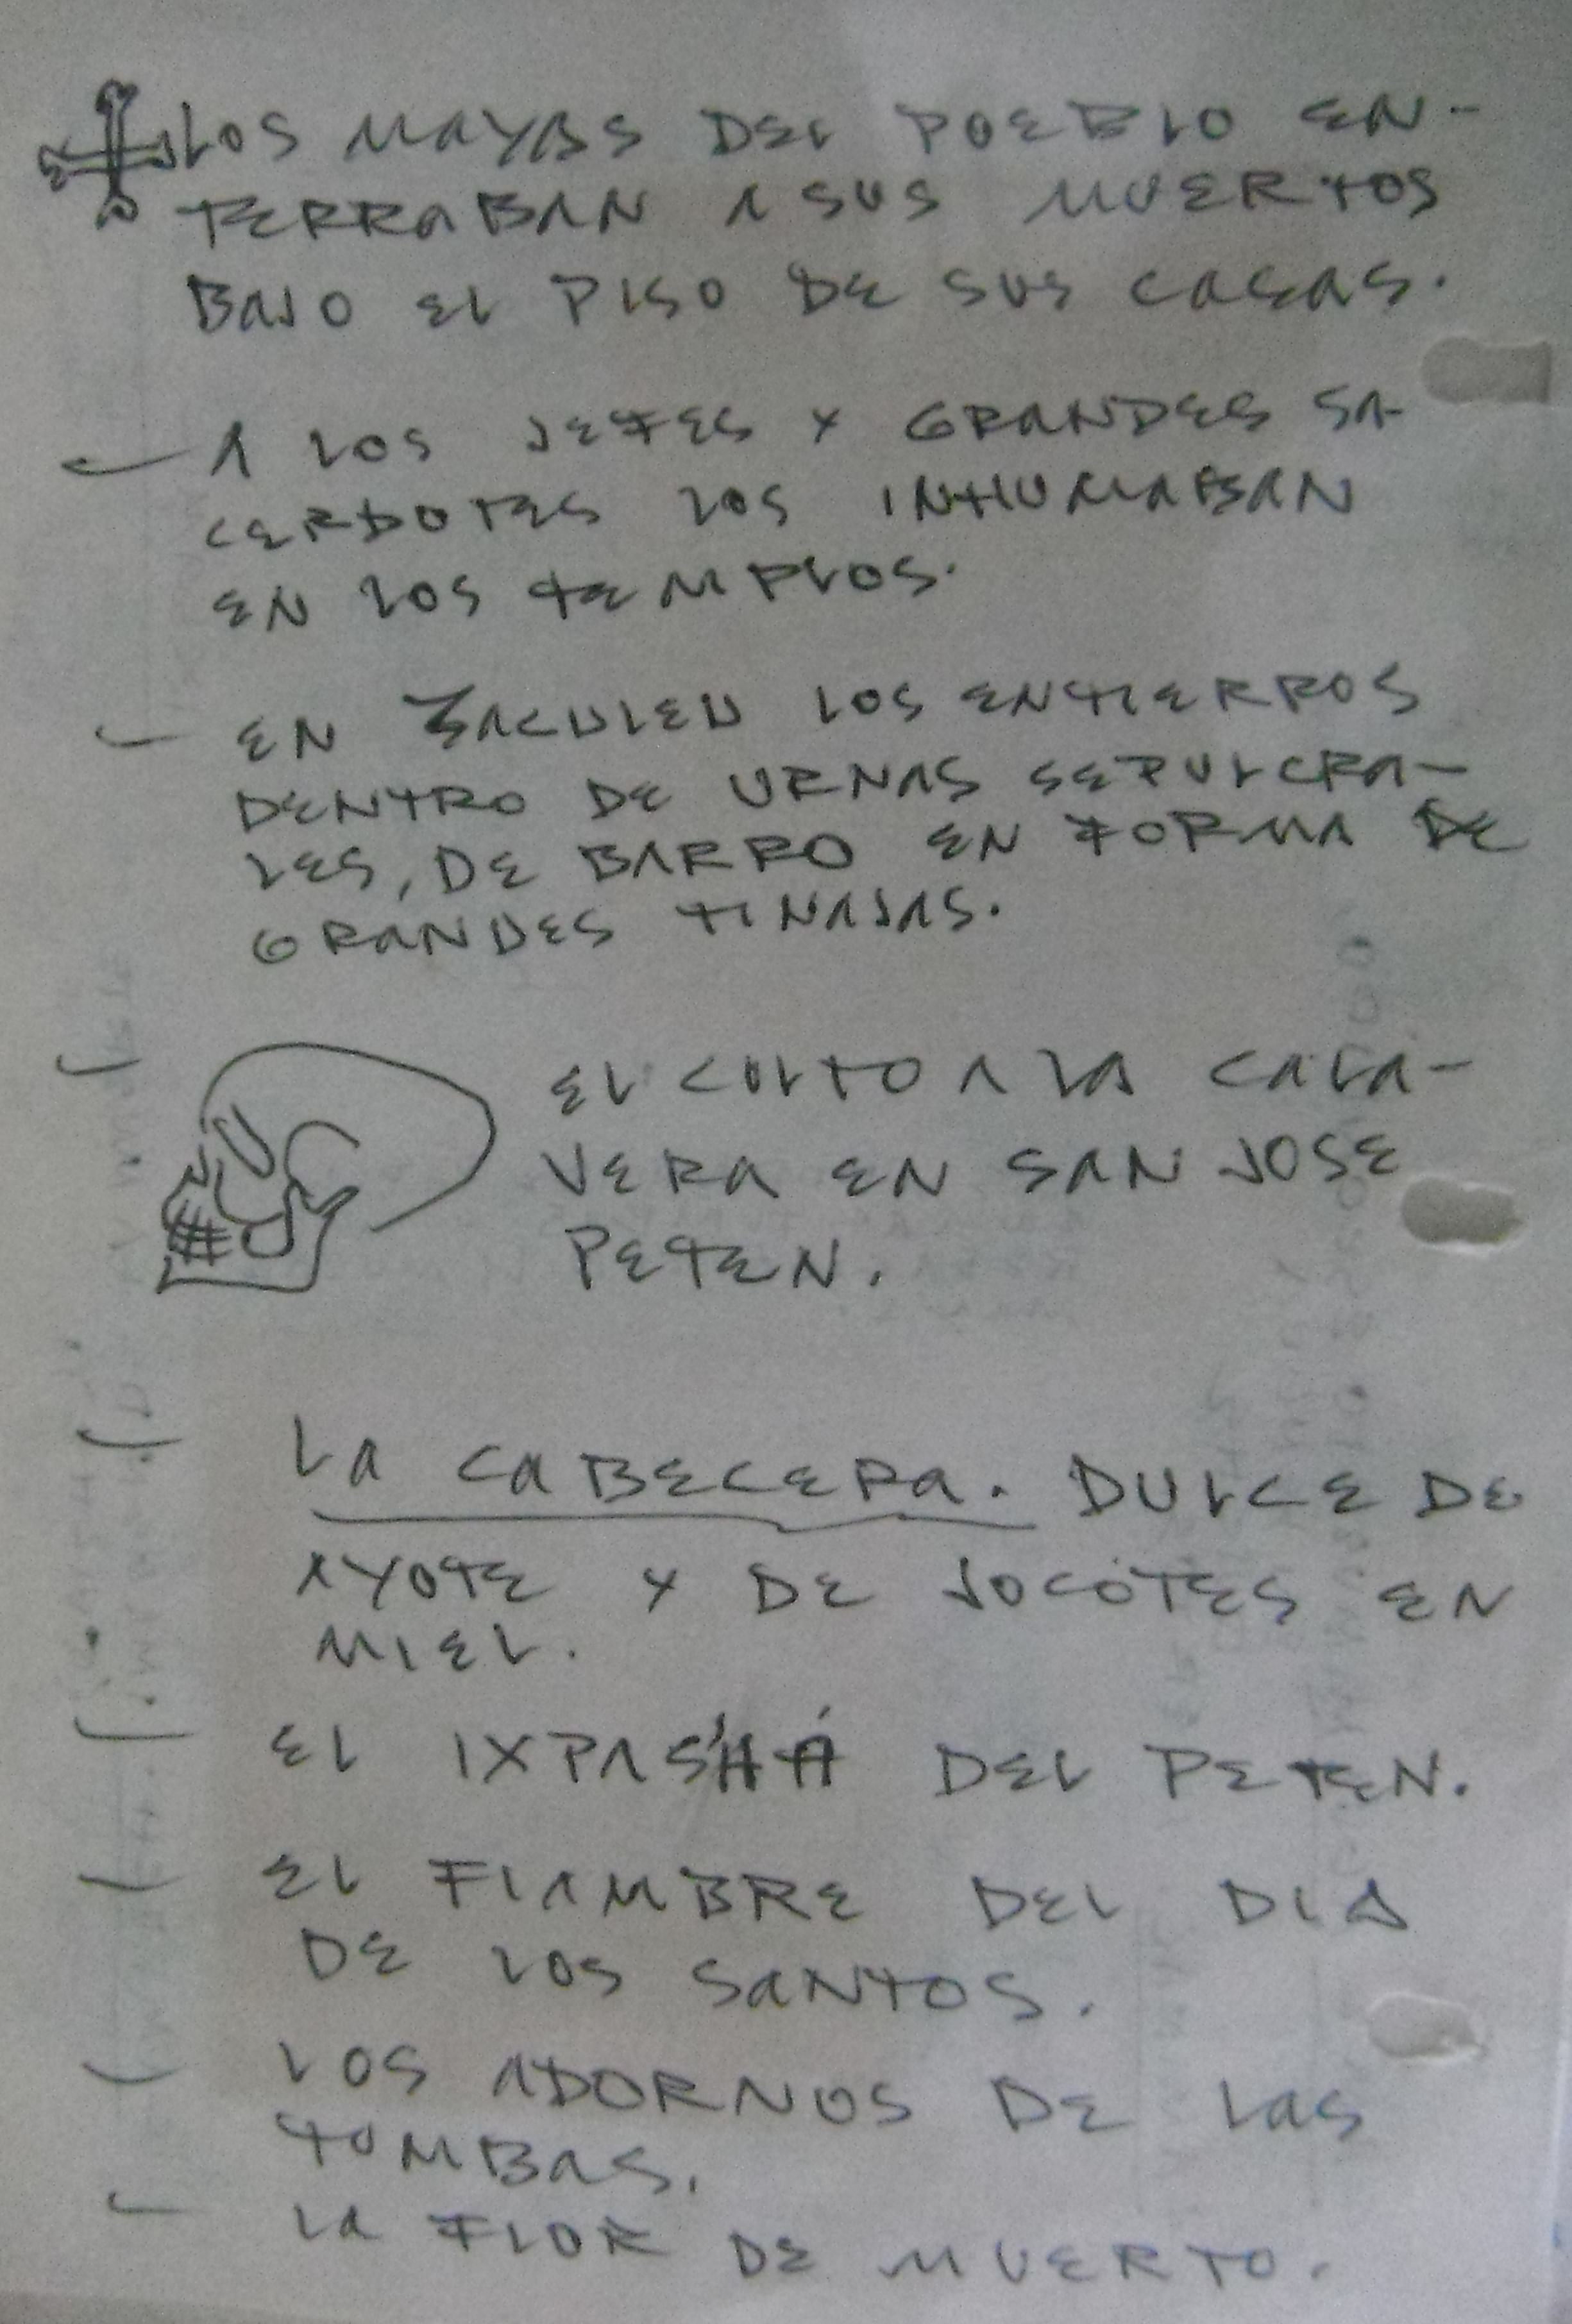 LOS MAYAS DEL PUEBLO EN-
TERRABAN A SUS MUERTOS
BAJO EL PISO DE SUS CASAS.
A LOS JEFES Y GRANDES SA-
CERDOTES LOS INHUMABAN
EN LOS TEMPLOS.
EN ZACULEU LOS ENTIERROS
DENTRO DE URNAS SEPULCRA-
LES, DE BARRO EN FORMA DE
GRANDES TINAJAS.
EL CULTO A LA CALA-
VERA EN SAN JOSE
PETEN.
LA CABECERA. DULCE DE
AYOTE Y DE JOCOTES EN
MIEL.
EL IXPASHÁ DEL PETEN.
EL FIAMBRE DEL DIA
DE LOS SANTOS.
LOS ADORNOS DE LAS
TUMBAS.
LA FLOR DE MUERTO.